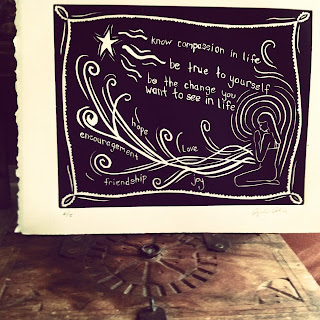 know compassion in life
be true to yourself
be the change you
want to see in life
hope
love
encouragement
friendship
joy